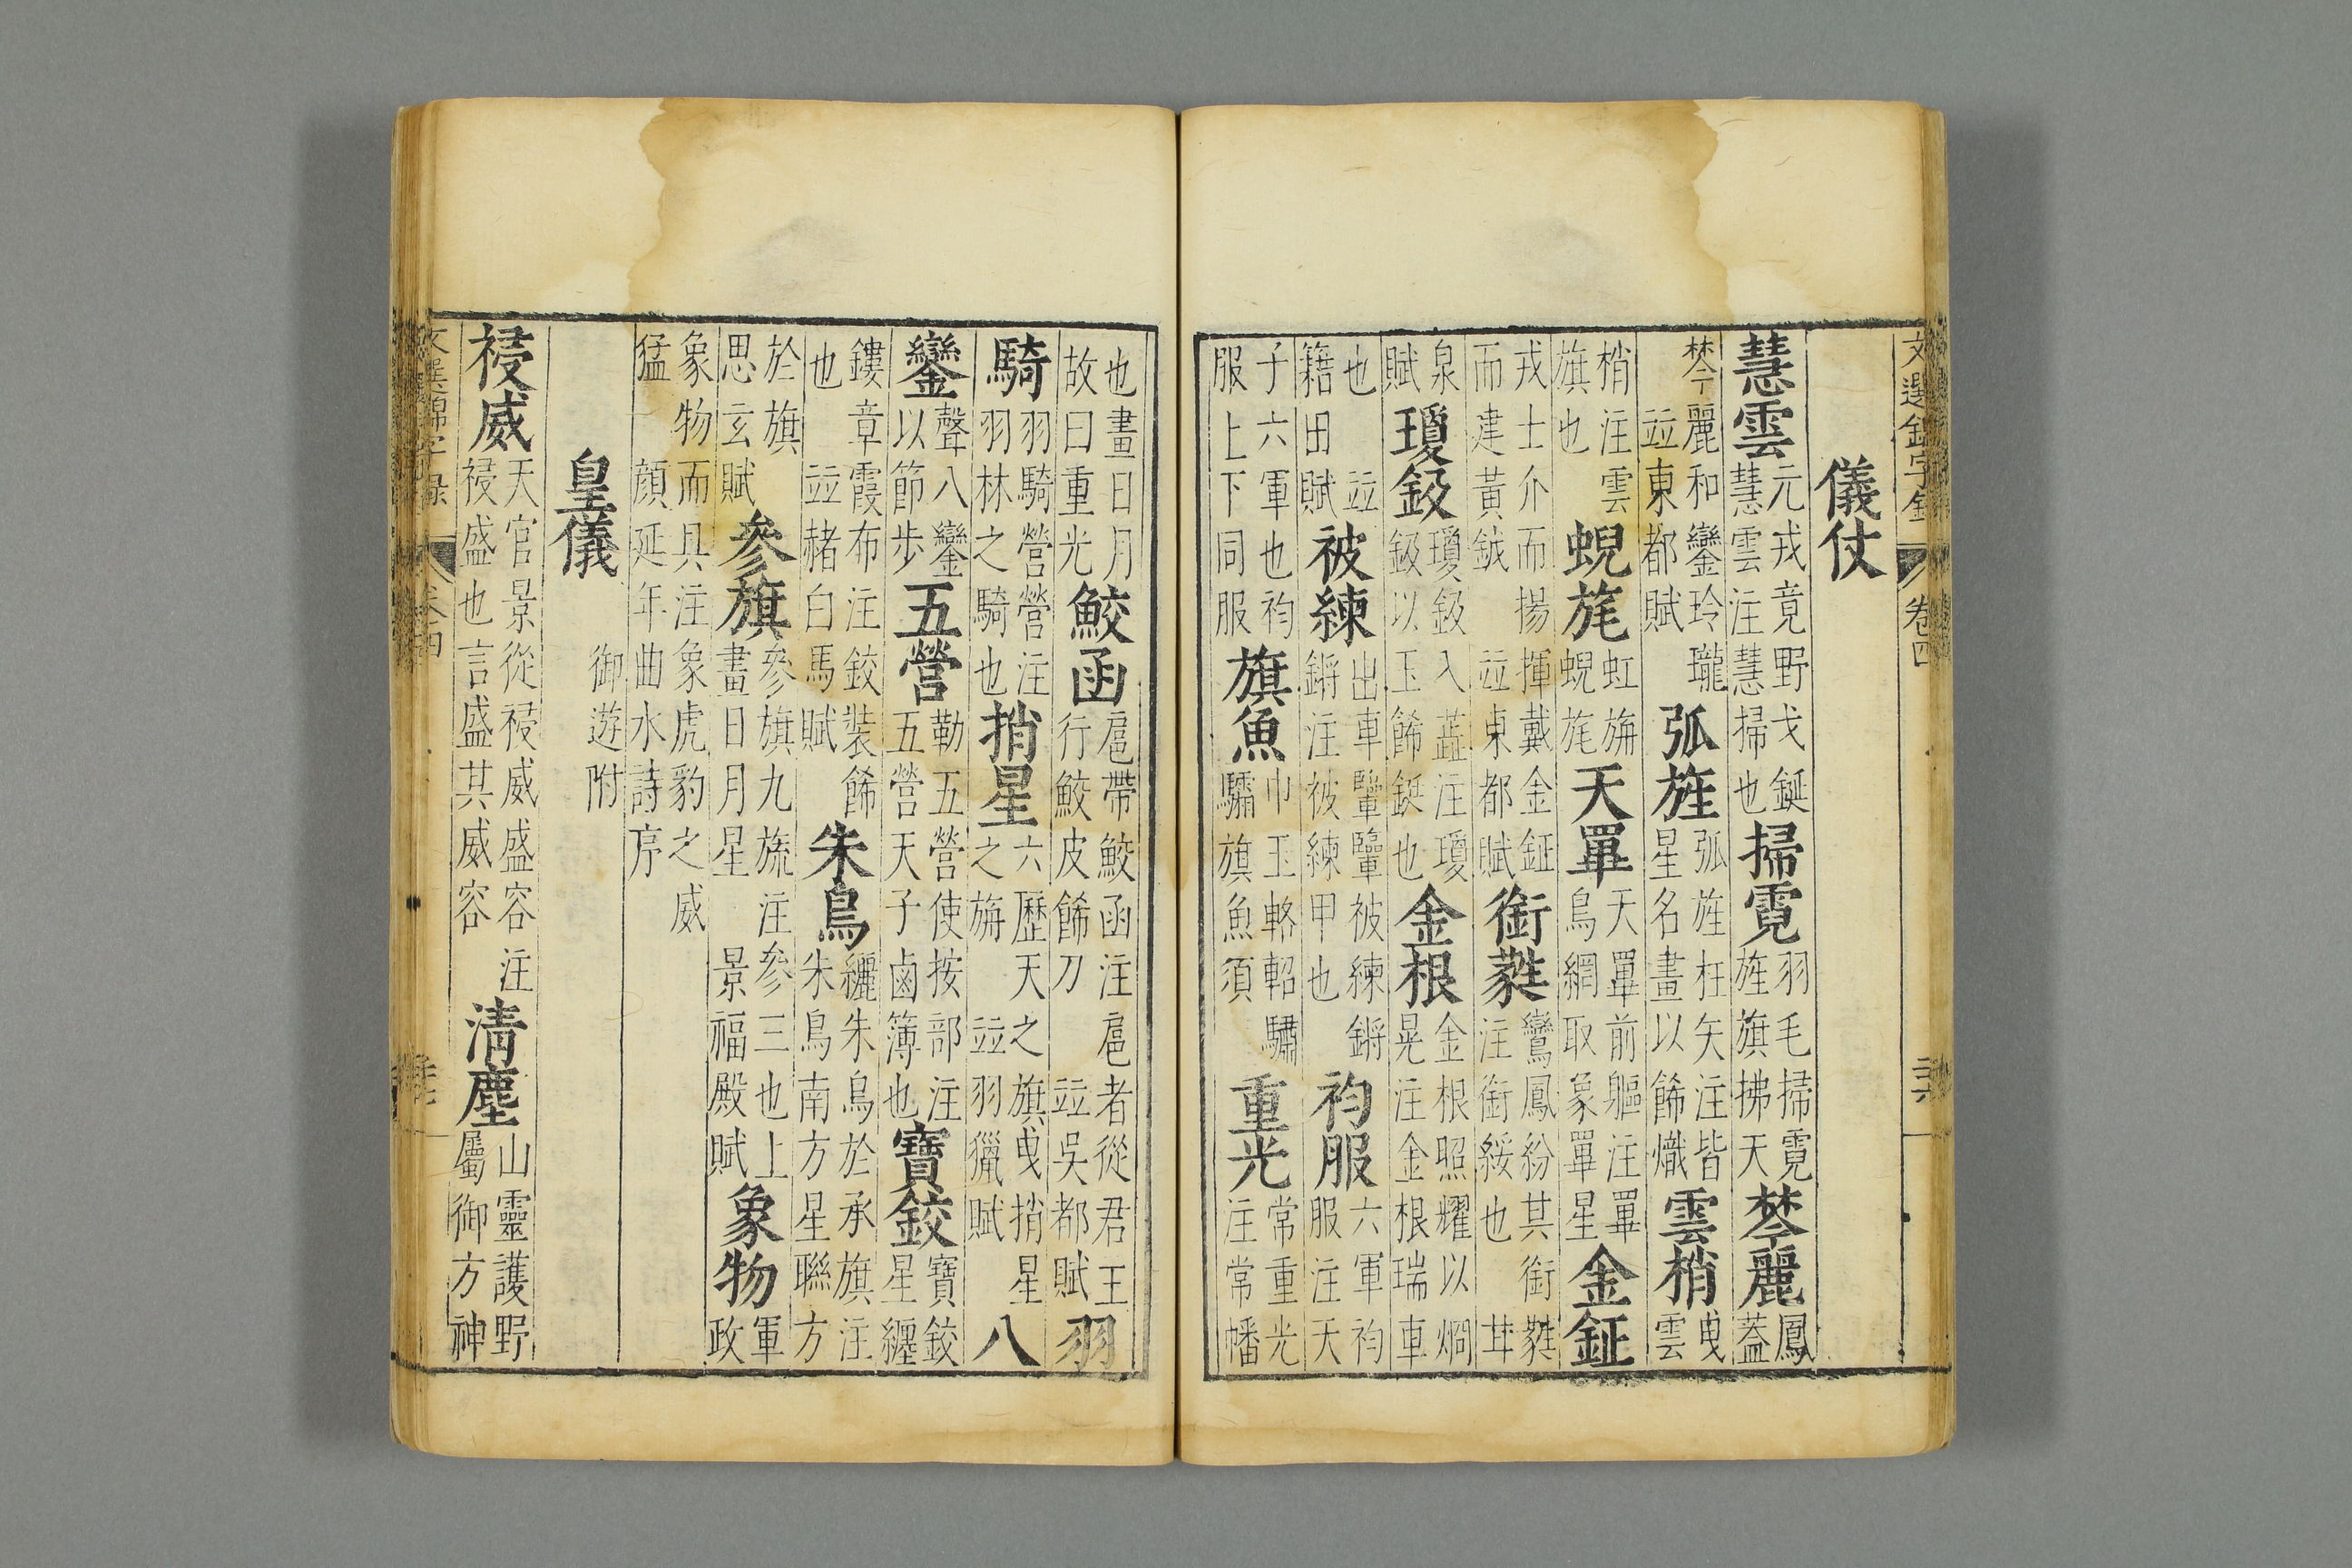 文選錦字錄 卷四
儀仗
慧雲元戎竟野戈鋋慧雲注慧掃也掃霓羽毛掃霓旌旗拂天棽麗鳳蓋
棽麗和鑾玲瓏竝東都賦弧旌弧旌枉矢注皆星名畫以餙熾雲梢曳雲
梢注雲旗也蜺旄虹旃蜺旄天罼天罼前軀注罼鳥網取象罼星金鉦
戎士介而揚揮戴金鉦而建黃鉞竝東都賦銜蕤鸞鳳紛其銜蕤注銜綏也
泉賦瓊鈒瓊鈒入蘂注瓊鈒以玉餙鋋也金根金根照耀以烱晃注金根瑞車
也竝籍田賦被練出車轚轚被練鏘鏘注被練甲也袀服六軍袀服注天
子六軍也袀服上下同服旗魚巾玉輅軺驌驦旗魚須重光常重光注常幡
也畫日月故曰重光鮫函扈帶鮫函注扈者從君王行鮫皮餙刀竝吳都賦羽
騎羽騎營營注羽林之騎也捎星六歷天之旗曳捎星之旃竝羽獵賦八
鑾聲八鑾以節步五營勒五營使按部注五營天子鹵簿也寶鉸寶鉸星纏
鏤章霞布注鉸裝餙也竝赭白馬賦朱鳥纚朱鳥於承旗注朱鳥南方星聯方
於旗思玄賦參旗參旗九旒注參三也上畫日月星景福殿賦象物軍政
象物而具注象虎豹之威猛顔延年曲水詩序
皇儀御遊附
祲威天官景從祲威盛容注祲盛也言盛其威容清塵山靈護野屬御方神
文選錦字錄 卷四